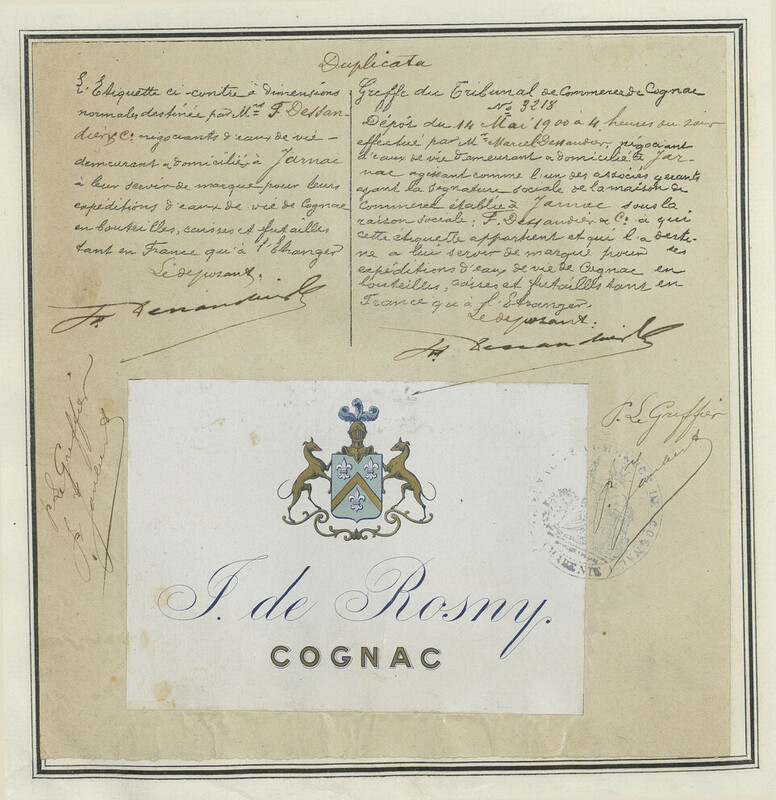 Duplicata
L'Etiquette ci-contre à dimensions
normales destinée par Mrs F. Dessan-
dier & Co négociants d'eaux de vie
demeurant & domiciliés à Jarnac
à leur servir de marque pour leurs
expéditions d'eaux de vie de Cognac
en bouteilles, caisses et futailles
tant en France qu'à l'Etranger
Le déposant.
F. Dessandier
Greffe du Tribunal de Commerce de Cognac
No 3218
Dépôt du 14 Mai 1900 à 4 heures du soir
effectué par Mr Marcel Dessandier, négociant
d'eaux de vie demeurant & domicilié à Jar-
nac agissant comme l'un des associés gérants
ayant la signature sociale de la maison de
Commerce établie à Jarnac sous la
raison sociale: F. Dessandier & Co à qui
cette étiquette appartient et qui l'a desti-
née à leur servir de marque pour ses
expéditions d'eaux de vie de Cognac en
bouteilles, caisses et futailles tant en
France qu'à l'Etranger.
Le déposant:
F. Dessandier
P. Le Greffier
P. Le Greffier
COGNAC
J. de Rosny.
COGNAC